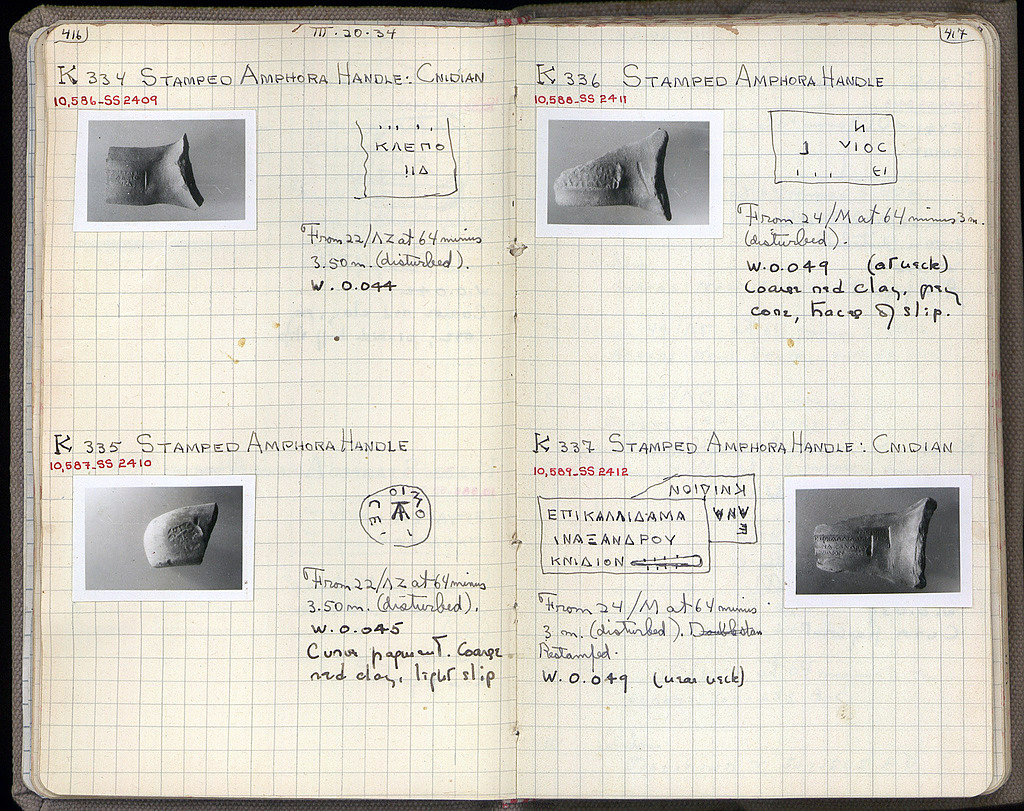 416
III·20·34
K 334 STAMPED AMPHORA HANDLE: CNIDIAN
10,586-SS 2409
ΚΛΕΠΟ
ΙΙΔ
From 22/ΛΖ at 64 minus
3.50 m. (disturbed).
W. 0.044
K 335 STAMPED AMPHORA HANDLE
10,587-SS 2410
From 22/ΛΖ at 64 minus
3.50 m. (disturbed).
W. 0.045
Curve fragment. Coarse
red clay, light slip
417
K 336 STAMPED AMPHORA HANDLE
10,588-SS 2411
ΥΙΟΣ
From 24/M at 64 minus 3 m.
(disturbed).
W. 0.049 (at neck)
Coarse red clay, grey
core, traces of slip.
K 337 STAMPED AMPHORA HANDLE: CNIDIAN
10,589-SS 2412
ΚΝΙΔΙΟΝ
ΑΝΑ
Ε
ΕΠΙΚΑΛΛΙΔΑΜΑ
ΙΝΑΞΑΝΔΡΟΥ
ΚΝΙΔΙΟΝ
From 24/M at 64 minus
3 m. (disturbed).
Restamped.
W. 0.049 (near neck)